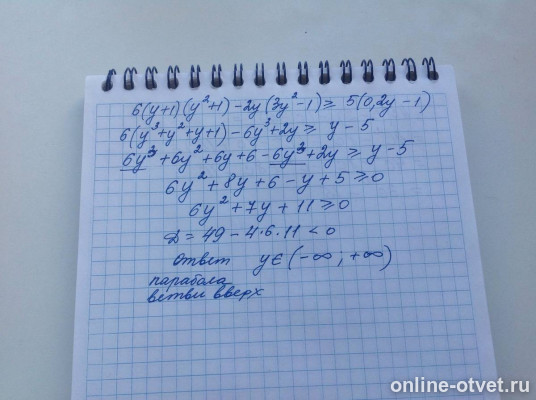 6(y+1)(y²+1)-2y(3y²-1)≥ 5(0,2y-1)
6(y³+y²+y+1)-6y³+2y≥ y-5
6y³+6y²+6y+6-6y³+2y≥ y-5
6y²+8y+6-y+5≥0
6y²+7y+11≥0
D=49-4·6·11<0
ответ y∈(-∞;+∞)
парабола
ветви вверх
online-otvet.ru